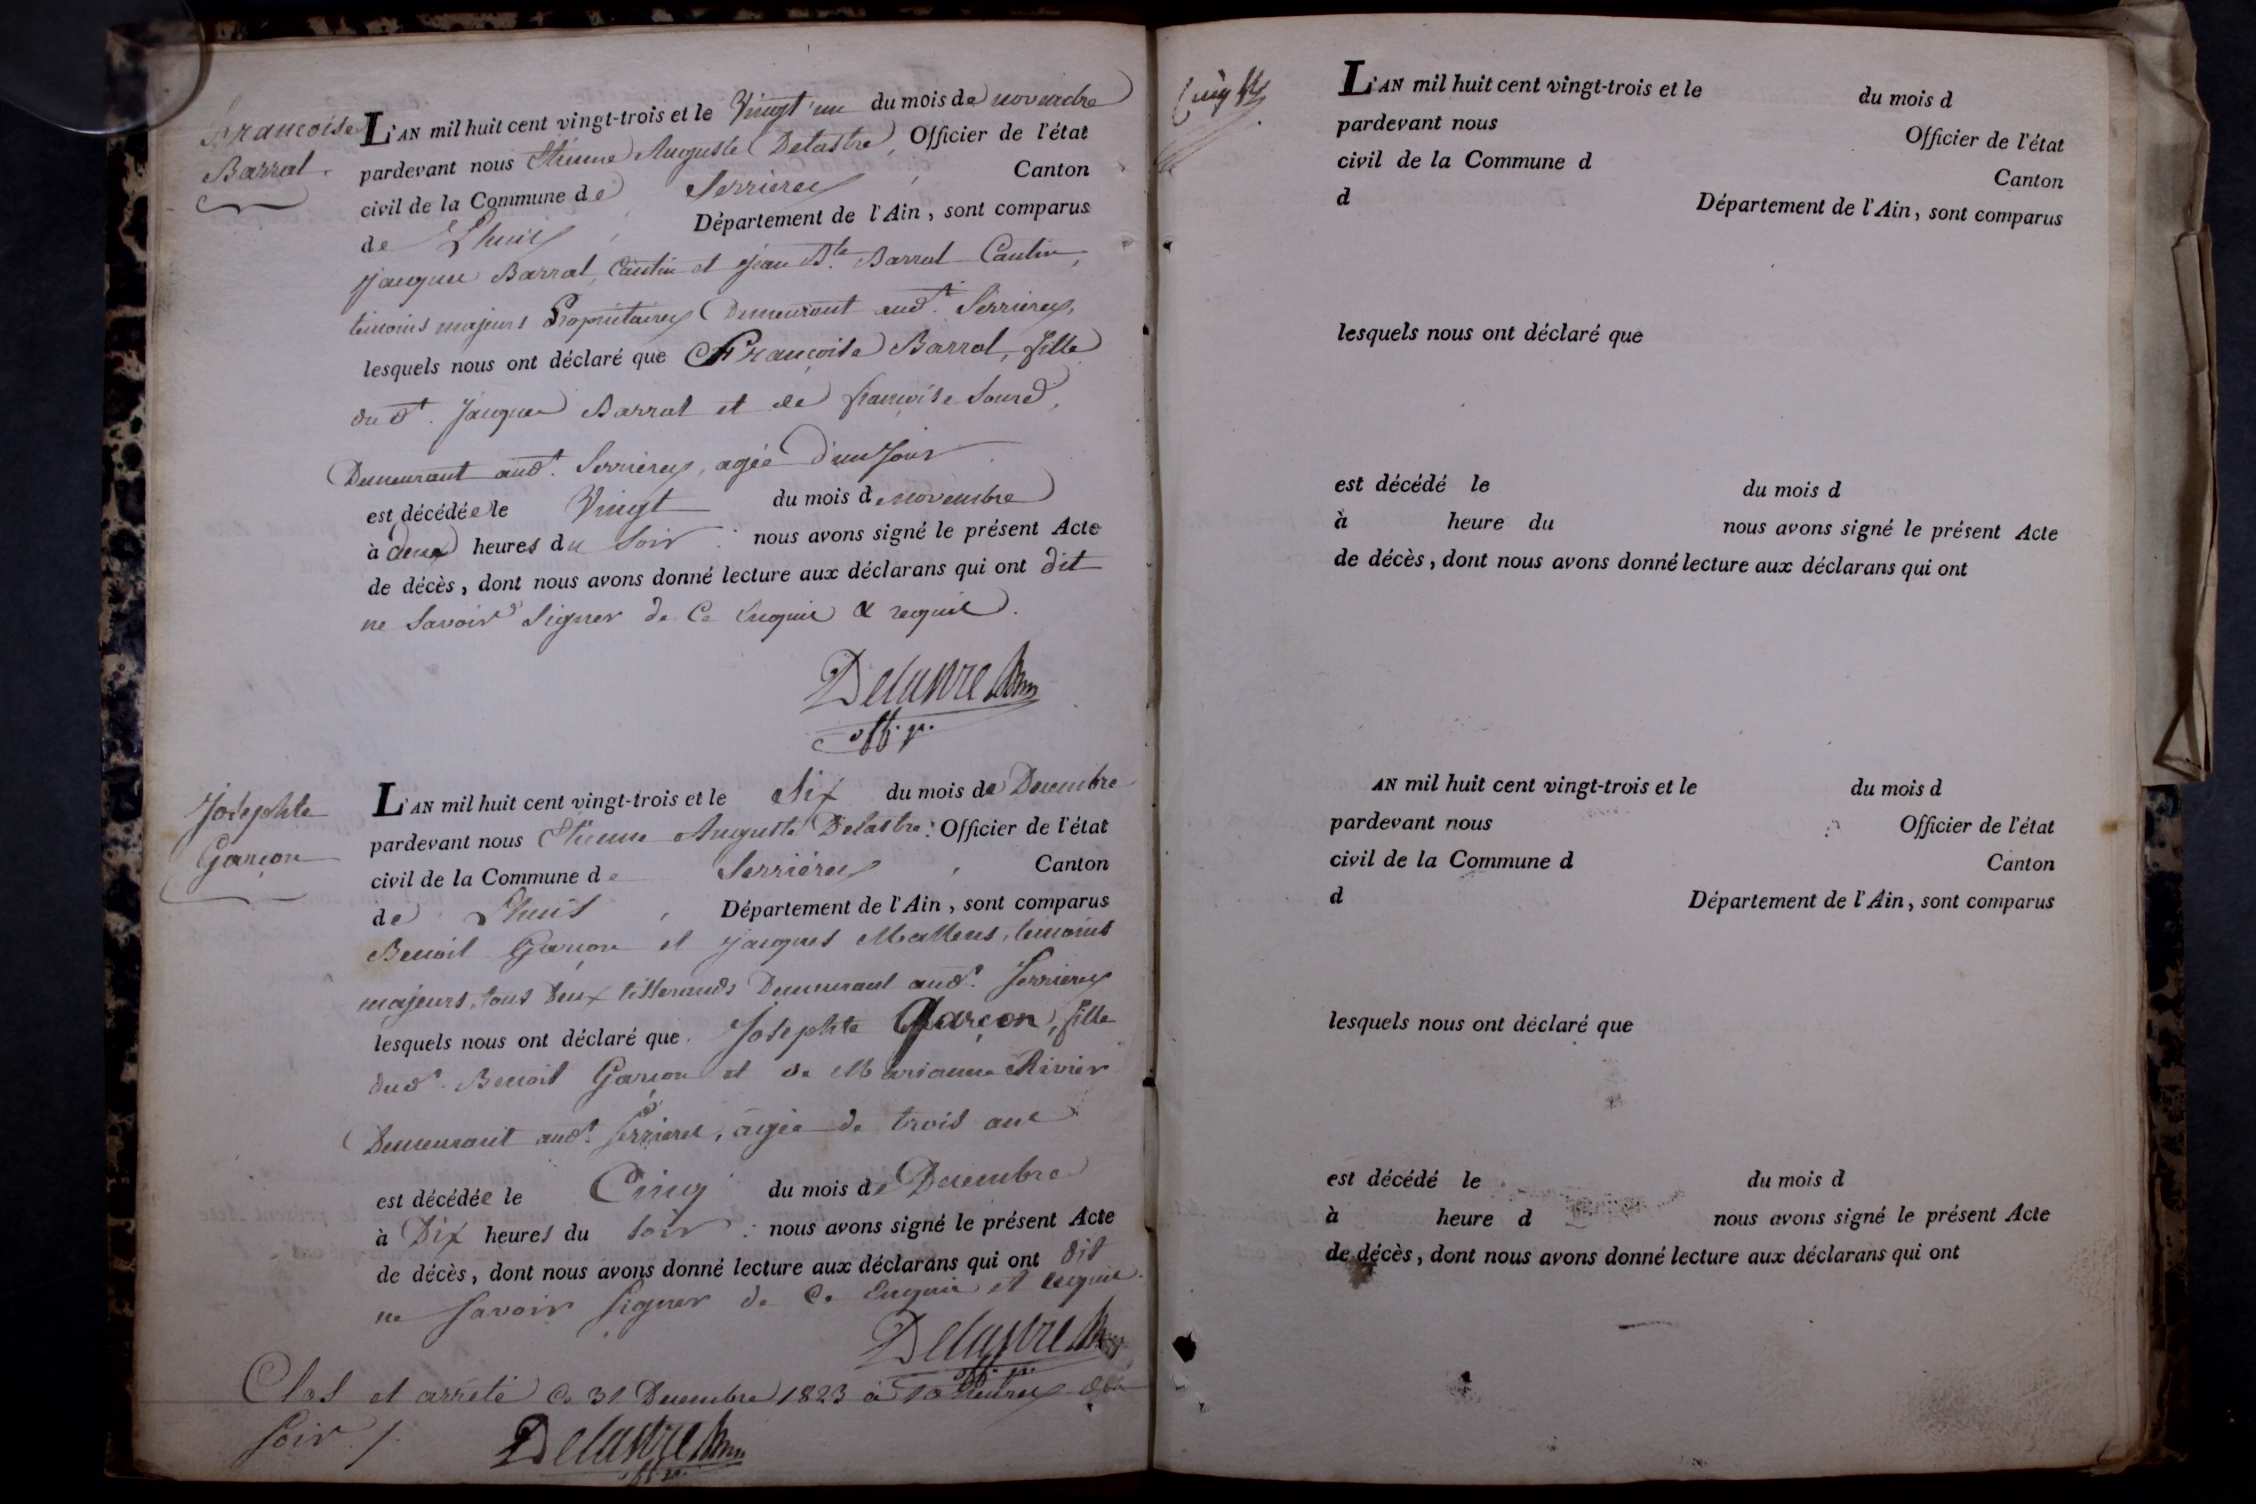 Françoise
Barral.
L'AN mil huit cent vingt-trois et le Vingt un du mois de novembre
pardevant nous Etienne Auguste Delastre, Officier de l'état
civil de la Commune de Serrieres, Canton
de Lhuis, Département de l'Ain, sont comparus
Jacques Barral Cautin et Jean Bte Barral Cautin,
temoins majeurs Proprietaires Demeurant audt Serrieres,
lesquels nous ont déclaré que Françoise Barral, fille
du dt. Jacques Barral et de françoise Sourd,
Demeurant audt. Serrieres, agée d'un Jour
est décédée le Vingt du mois de novembre
à deux heures du Soir : nous avons signé le présent Acte
de décès, dont nous avons donné lecture aux déclarans qui ont dit
ne Savoir Signer de Ce Enquis & requis.
Delastre
off. p.
Josephte
Garçon
L'AN mil huit cent vingt-trois et le Six du mois de Decembre
pardevant nous Etienne Auguste Delastre : Officier de l'état
civil de la Commune de Serriéres, Canton
de Lhuis, Département de l'Ain, sont comparus
Benoit Garçon et Jacques, temoins
majeurs, tous deux tisserands Demeurant audt. Serrieres
lesquels nous ont déclaré que Josephte Garçon, fille
dudt. Benoit Garçon et de Marianne Rivier
Demeurant audt. Serrieres, agée de trois ans
est décédée le Cinq du mois de Decembre
à Dix heures du Soir : nous avons signé le présent Acte
de décès, dont nous avons donné lecture aux déclarans qui ont dit
ne Savoir Signer de Ce Enquis et requis.
Delastre
off. p.
Clos et arreté Ce 31 Decembre 1823 à 10 heures du
Soir ./.
Delastre
off. p.
L'AN mil huit cent vingt-trois et le du mois d
pardevant nous Officier de l'état
civil de la Commune d Canton
d Département de l'Ain, sont comparus
lesquels nous ont déclaré que
est décédé le du mois d
à heure du nous avons signé le présent Acte
de décès, dont nous avons donné lecture aux déclarans qui ont
AN mil huit cent vingt-trois et le du mois d
pardevant nous Officier de l'état
civil de la Commune d Canton
d Département de l'Ain, sont comparus
lesquels nous ont déclaré que
est décédé le du mois d
à heure d nous avons signé le présent Acte
de décès, dont nous avons donné lecture aux déclarans qui ont